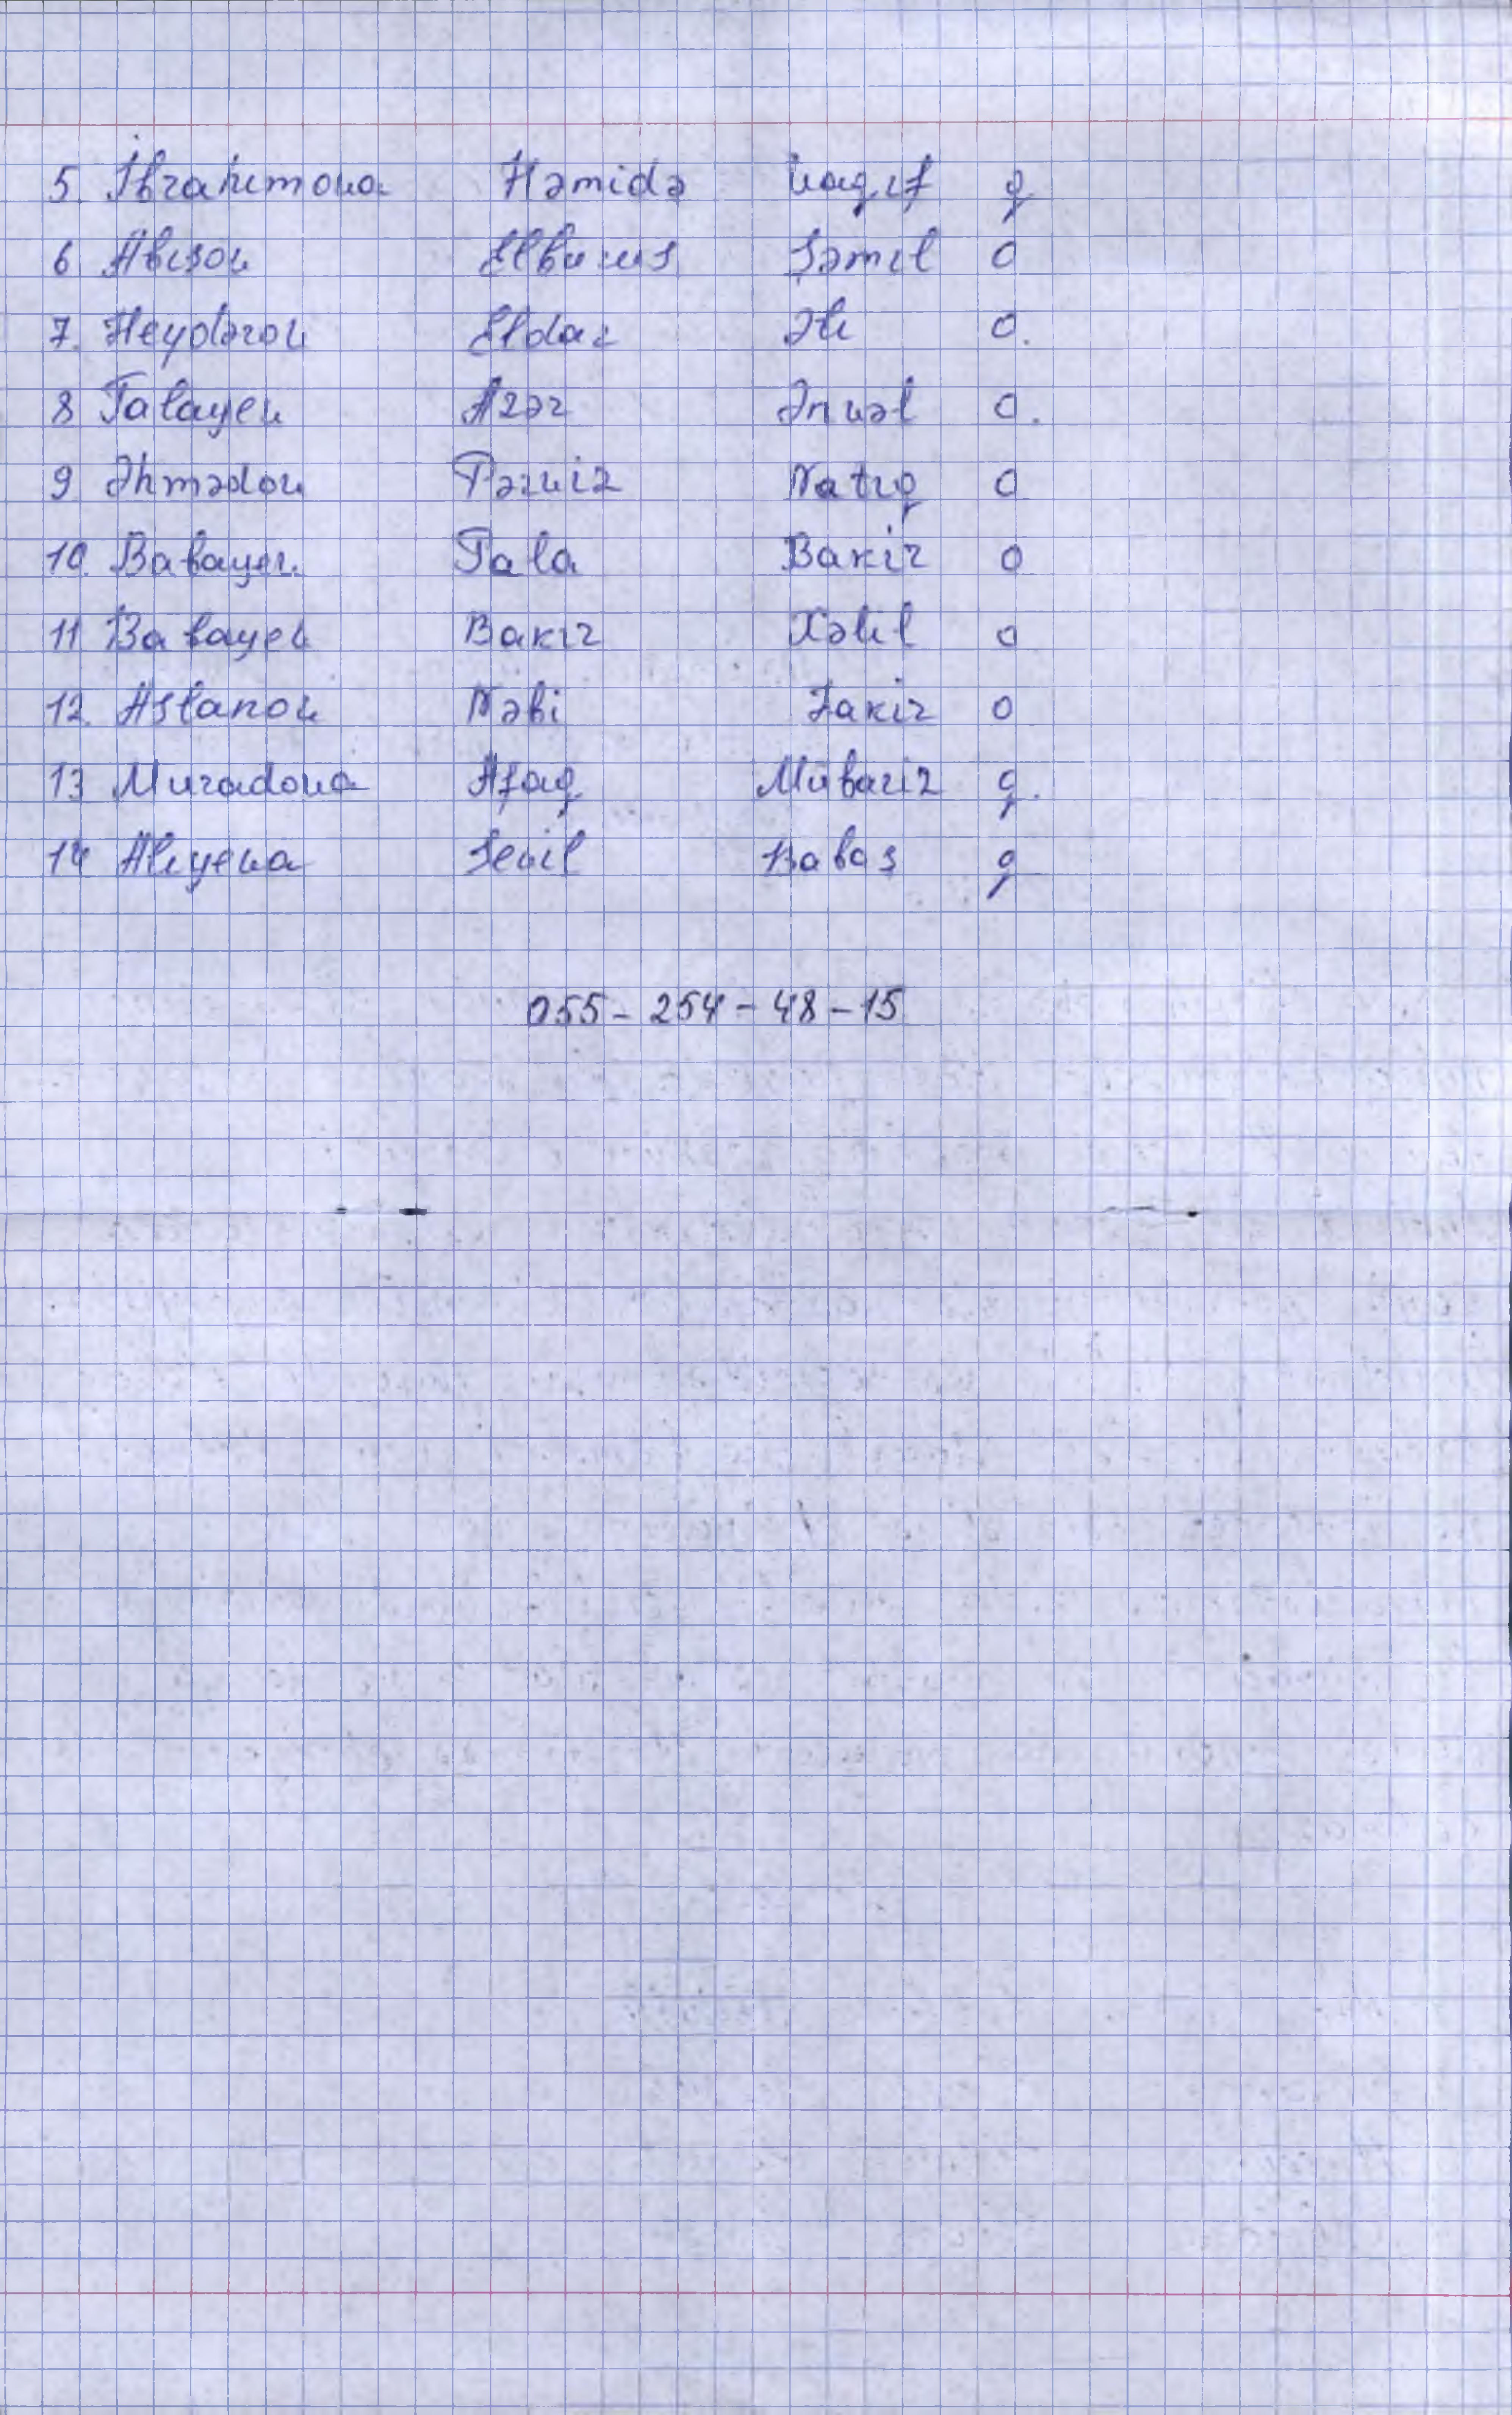 5. İbrahimova Həmidə Vaqif q
6 Abışov Elburus Şamil o
7. Heydərov Eldar Əli o.
8 Talayev Azər Ənvəl o.
9 Əhmədov Pərviz Natiq o
10. Babayev. Tala Bakir o
11 Babayev Bakir Xəlil o
12. Aslanov Nəbi Zakir o
13 Muradova Afaq Mübariz q.
14 Alıyeva Sevil Babaş q
055 - 254 - 48 - 15